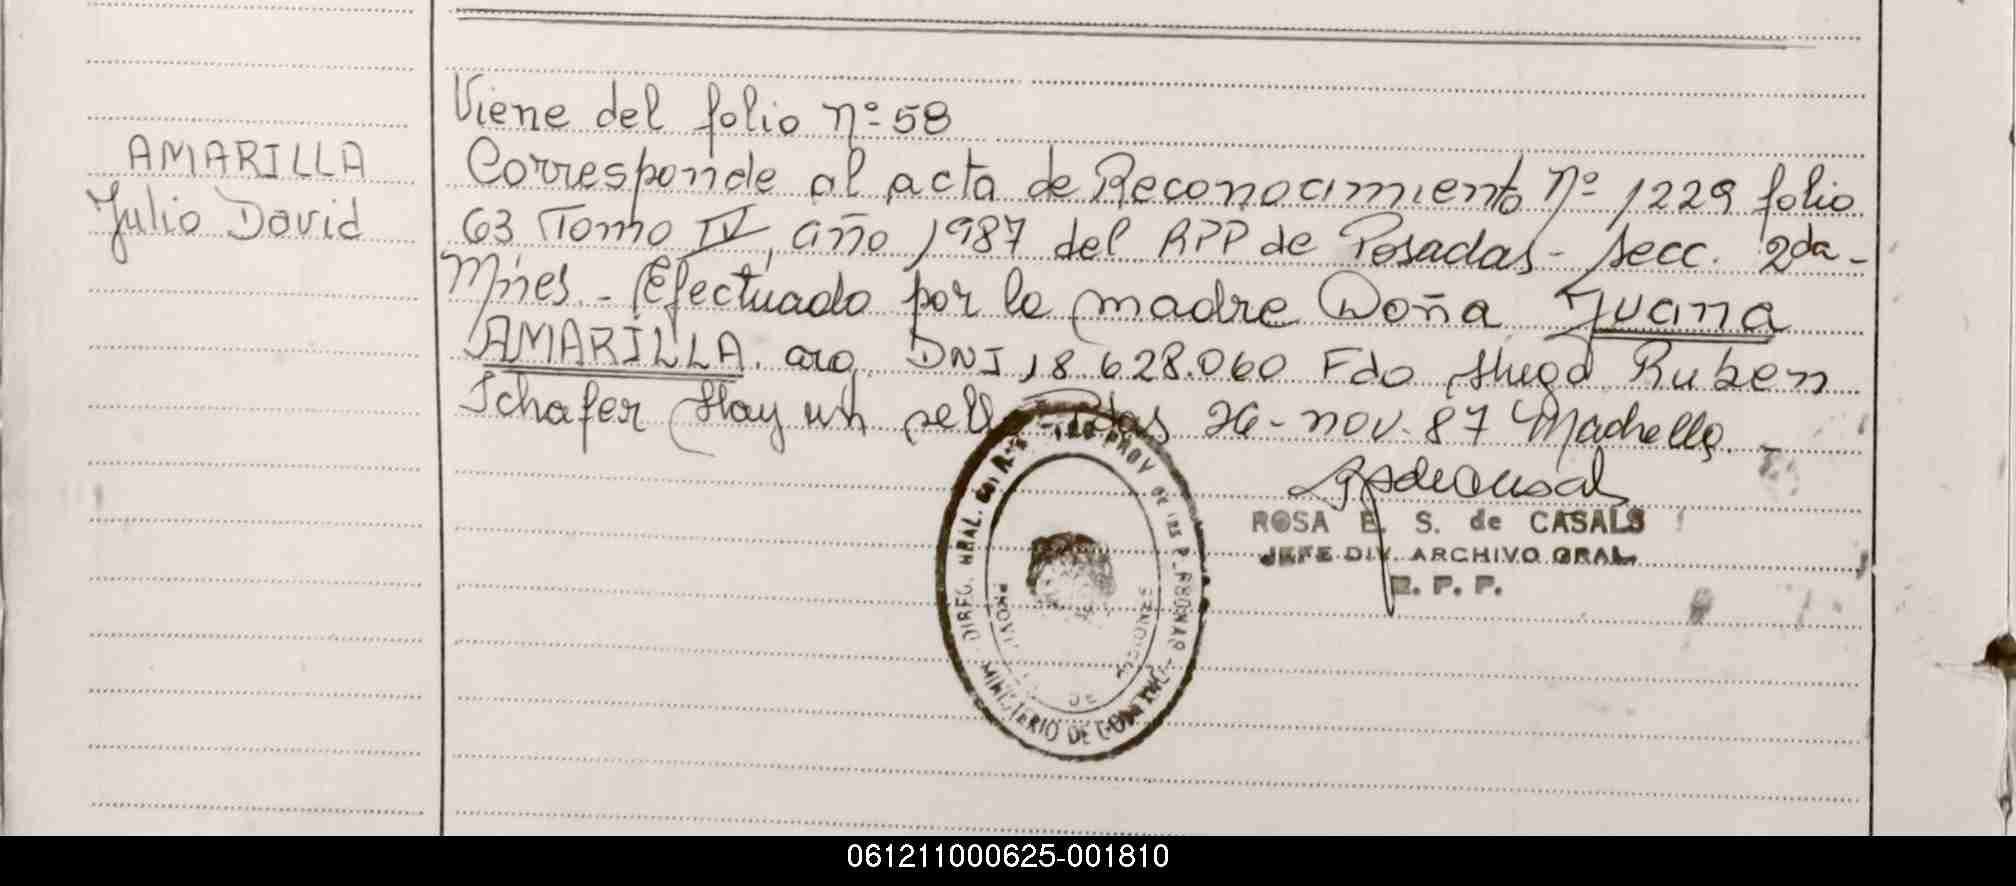 AMARILLA
Julio David
Viene del folio nº 58
Corresponde al acta de Reconocimiento nº 1229 folio
63 Tomo IV, año 1987 del RPP de Posadas - secc. 2da -
Mnes. - Efectuado por la madre Doña Juana
AMARILLA. arg. DNI 18.628.060 Fdo Hugo Ruben
Schafer Hay un sello Pdas 26 - nov. 87 Machello. -
ROSA E. S. de CASALS
JEFE DIV. ARCHIVO GRAL.
R. P. P.
DIREC. GRAL. DEL REG. PROV. DE LAS PERSONAS
MINISTERIO DE GOBIERNO
PROVINCIA DE MISIONES
061211000625-001810